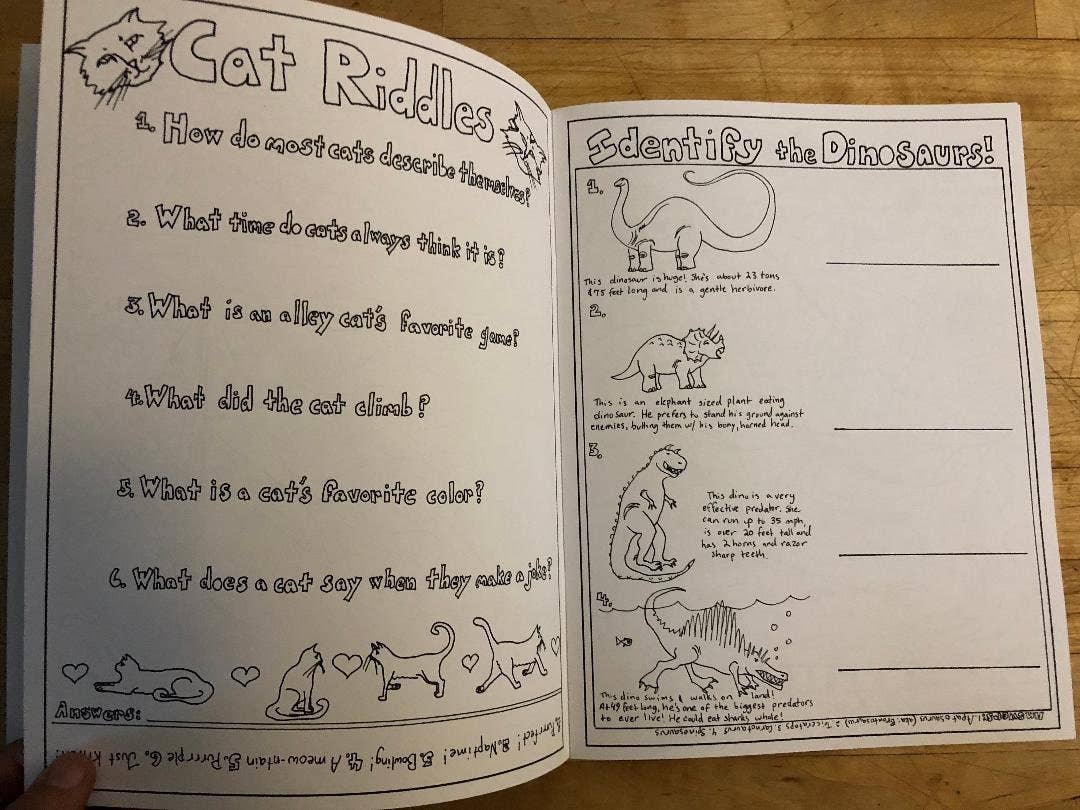 Cat Riddles
1. How do most cats describe themselves?
2. What time do cats always think it is?
3. What is an alley cat's favorite game?
4. What did the cat climb?
5. What is a cat's favorite color?
6. What does a cat say when they make a joke?
Answers:
1. Purrrfect! 2. Naptime! 3. Bowling! 4. A meow-ntain 5. Purrrple 6. Just
Identify the Dinosaurs!
1.
This dinosaur is huge! She's about 23 tons
& 75 feet long and is a gentle herbivore.
2.
This is an elephant sized plant eating
dinosaur. He prefers to stand his ground against
enemies, butting them w/ his bony, horned head.
3.
This dino is a very
effective predator. She
can run up to 35 mph,
is over 20 feet tall and
has 2 horns and razor
sharp teeth.
4.
This dino swims & walks on land!
At 49 feet long, he's one of the biggest predators
to ever live! He could eat sharks whole!
Answers: 1. Apatosaurus (aka: Brontosaurus) 2. Triceratops 3. Carnotaurus 4. Spinosaurus